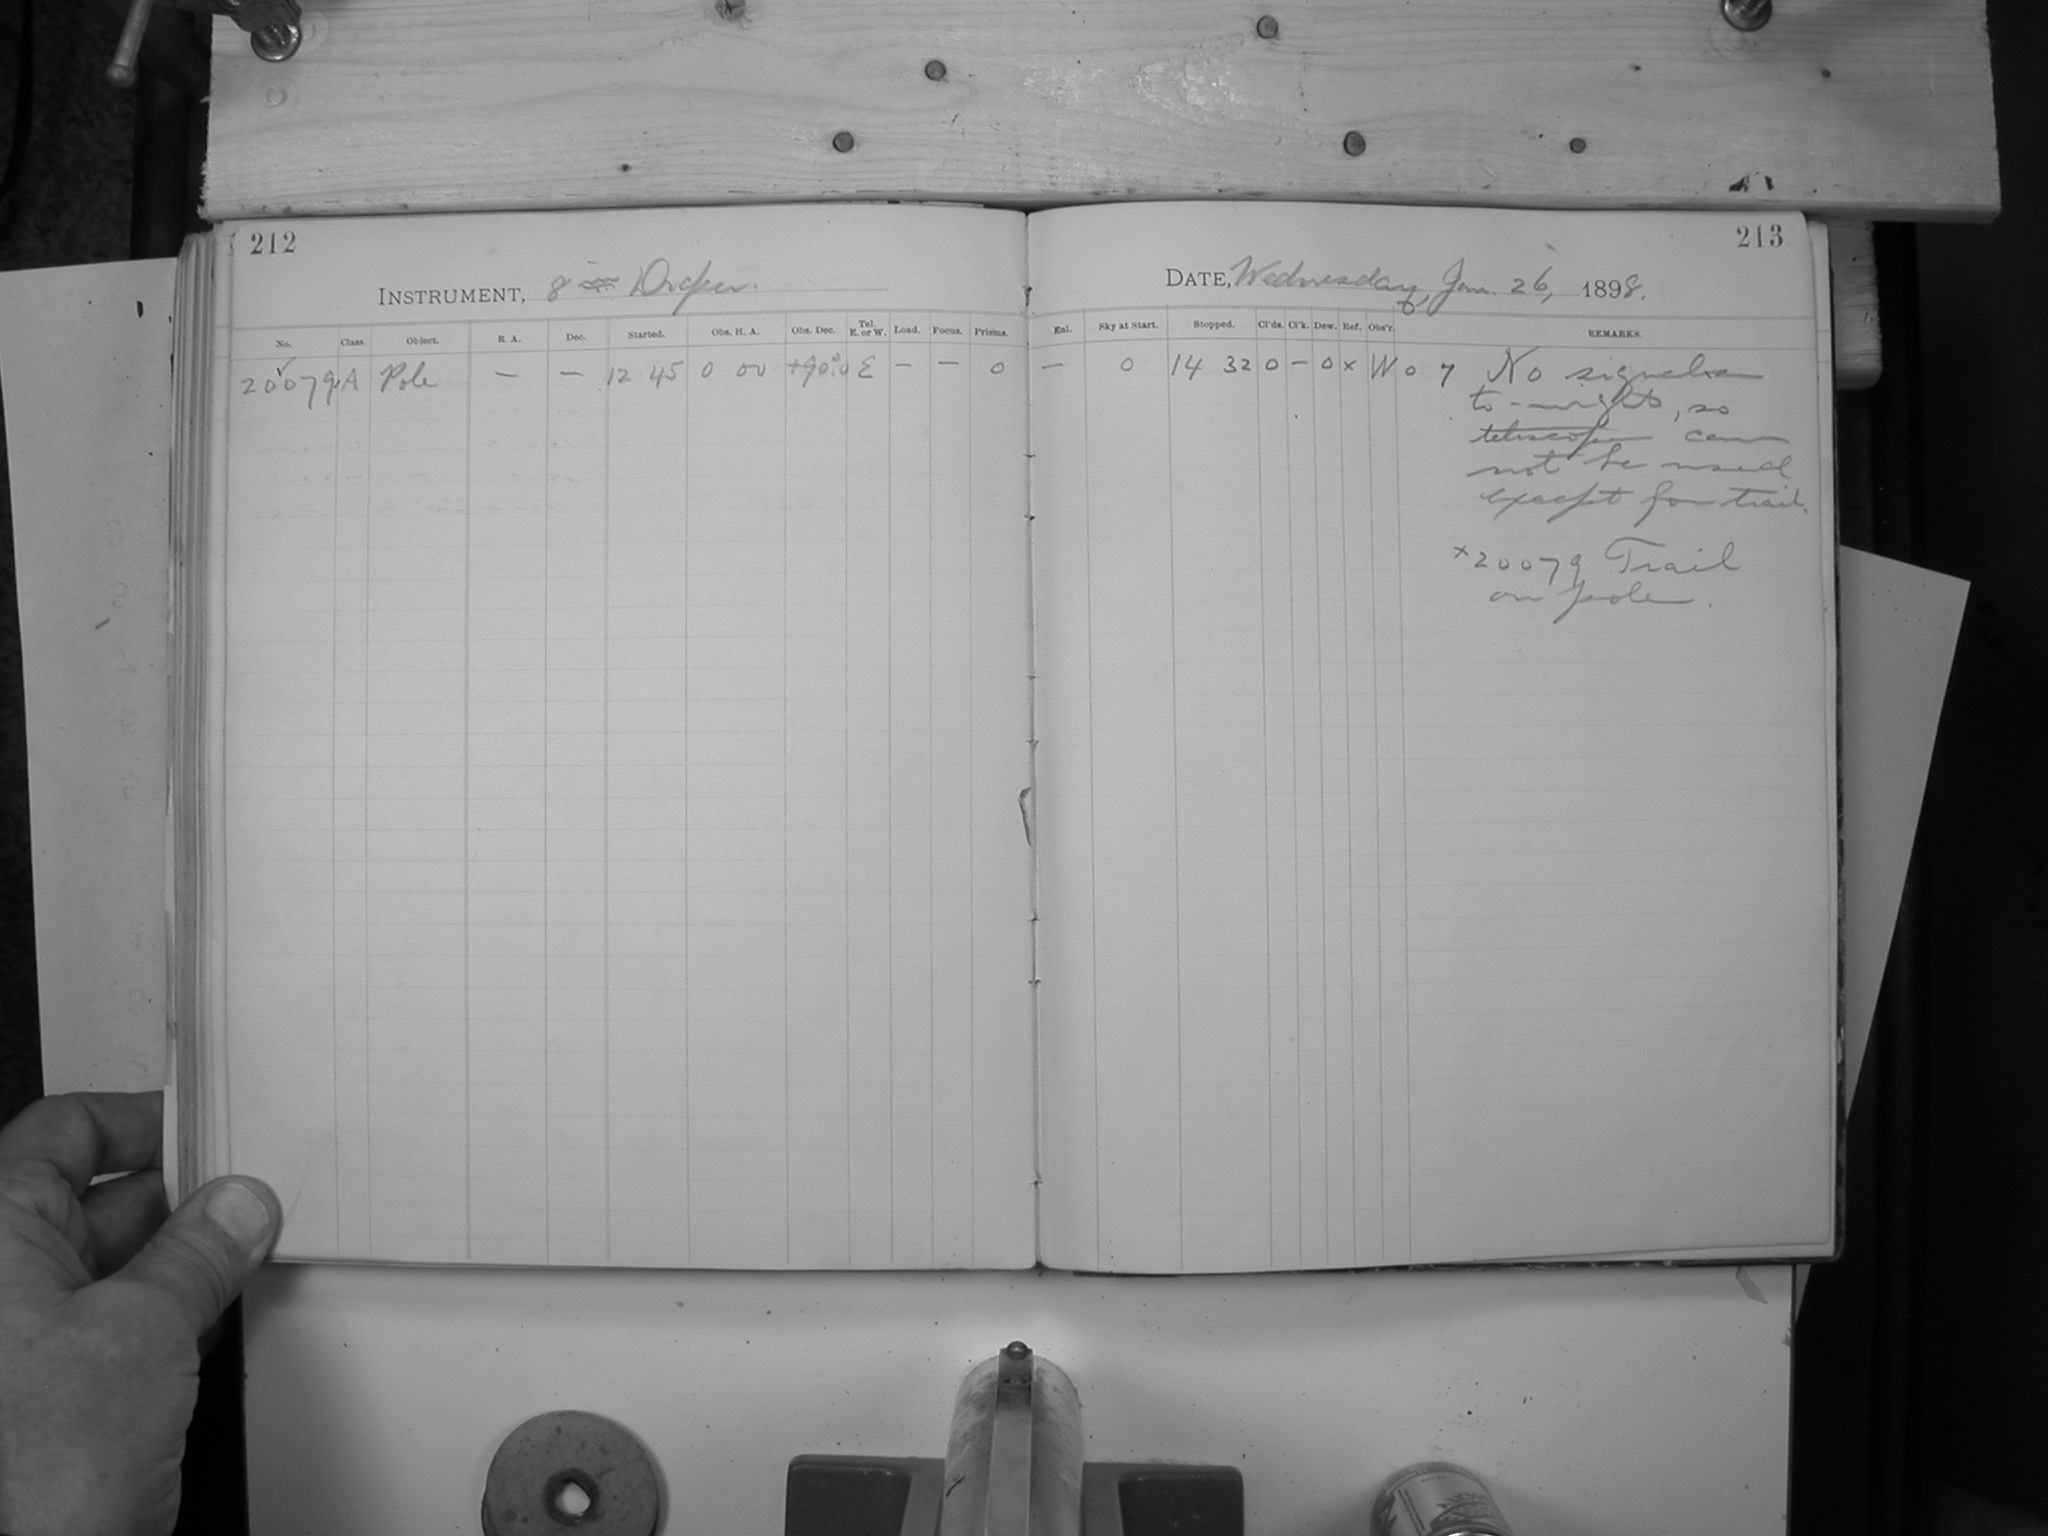 212
INSTRUMENT, 8 in Draper.
No. Class. Object. R. A. Dec. Started. Obs. H. A. Obs. Dec. Tel. E. or W. Load. Focus. Prisms.
20079 A Pole — — 12 45 0 00 +90°.0 E — — 0
213
DATE, Wednesday, Jan. 26, 1898.
Enl. Sky at Start. Stopped. Cl'ds. Cl'k. Dew. Ref. Obs'r. REMARKS.
— 0 14 32 0 — 0 x W 0 7 No signals
to-night, so
telescope can
not be used
except for trail.
x20079 Trail
on pole.